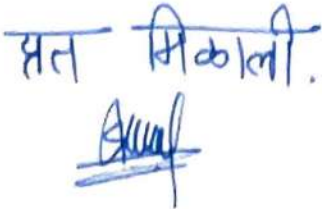 प्रत मिळाली.